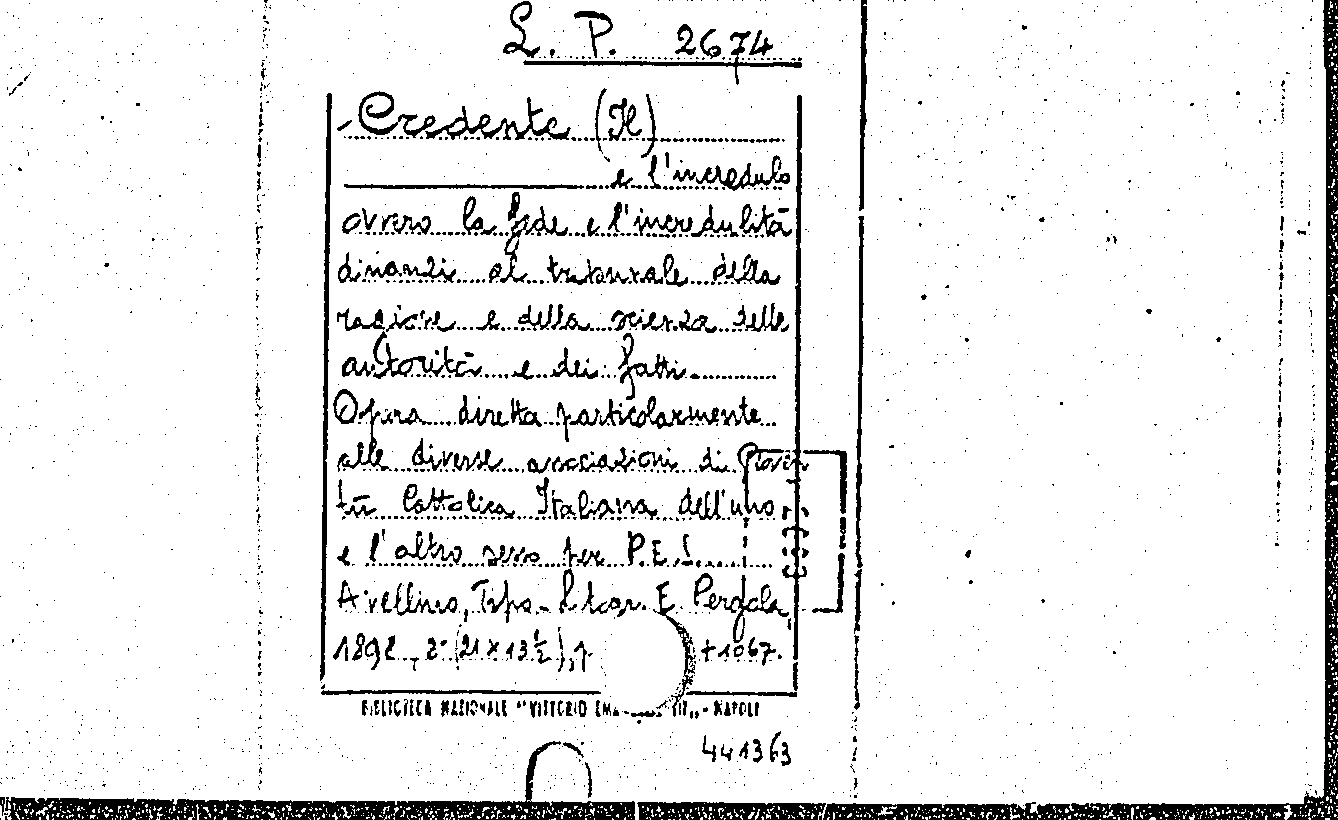 L. P. 2674
Credente (Il)
e l'incredulo
ovvero la fede e l'incredulità
dinanzi al tribunale della
ragione e della scienza delle
autorità e dei fatti.
Opera diretta particolarmente
alle diverse associazioni di Gioven
tù Cattolica Italiana dell'uno
e l'altro sesso per P.E.S....
Avellino, Tipo-Litogr. E. Pergola,
1892, 8° (21 x 13½), p + 1067.
BIBLIOTECA NAZIONALE "VITTORIO EMA III" - NAPOLI
441363